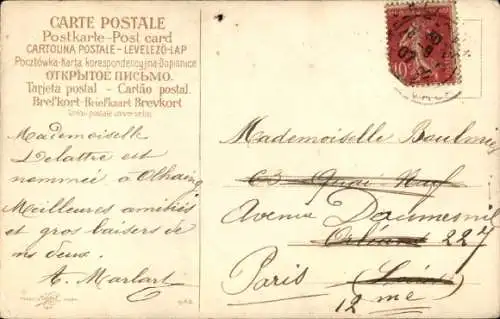 CARTE POSTALE
Postkarte - Post card
CARTOLINA POSTALE - LEVELEZŐ-LAP
Pocztówka - Karta korespondencyjna - Dopisnice
ОТКРЫТОЕ ПИСЬМО.
Tarjeta postal - Cartão postal.
Bref'kort - Briefkaart Brevkort
Union postale universelle.
Mademoiselle
Delattre est
nommée à
Meilleures amitiés
et gros baisers de
ns deux.
A. Marlart
10
Mademoiselle
63 Quai Neuf
Avenue Daumesnil
Orléans 227
Paris (Loiret)
12 me